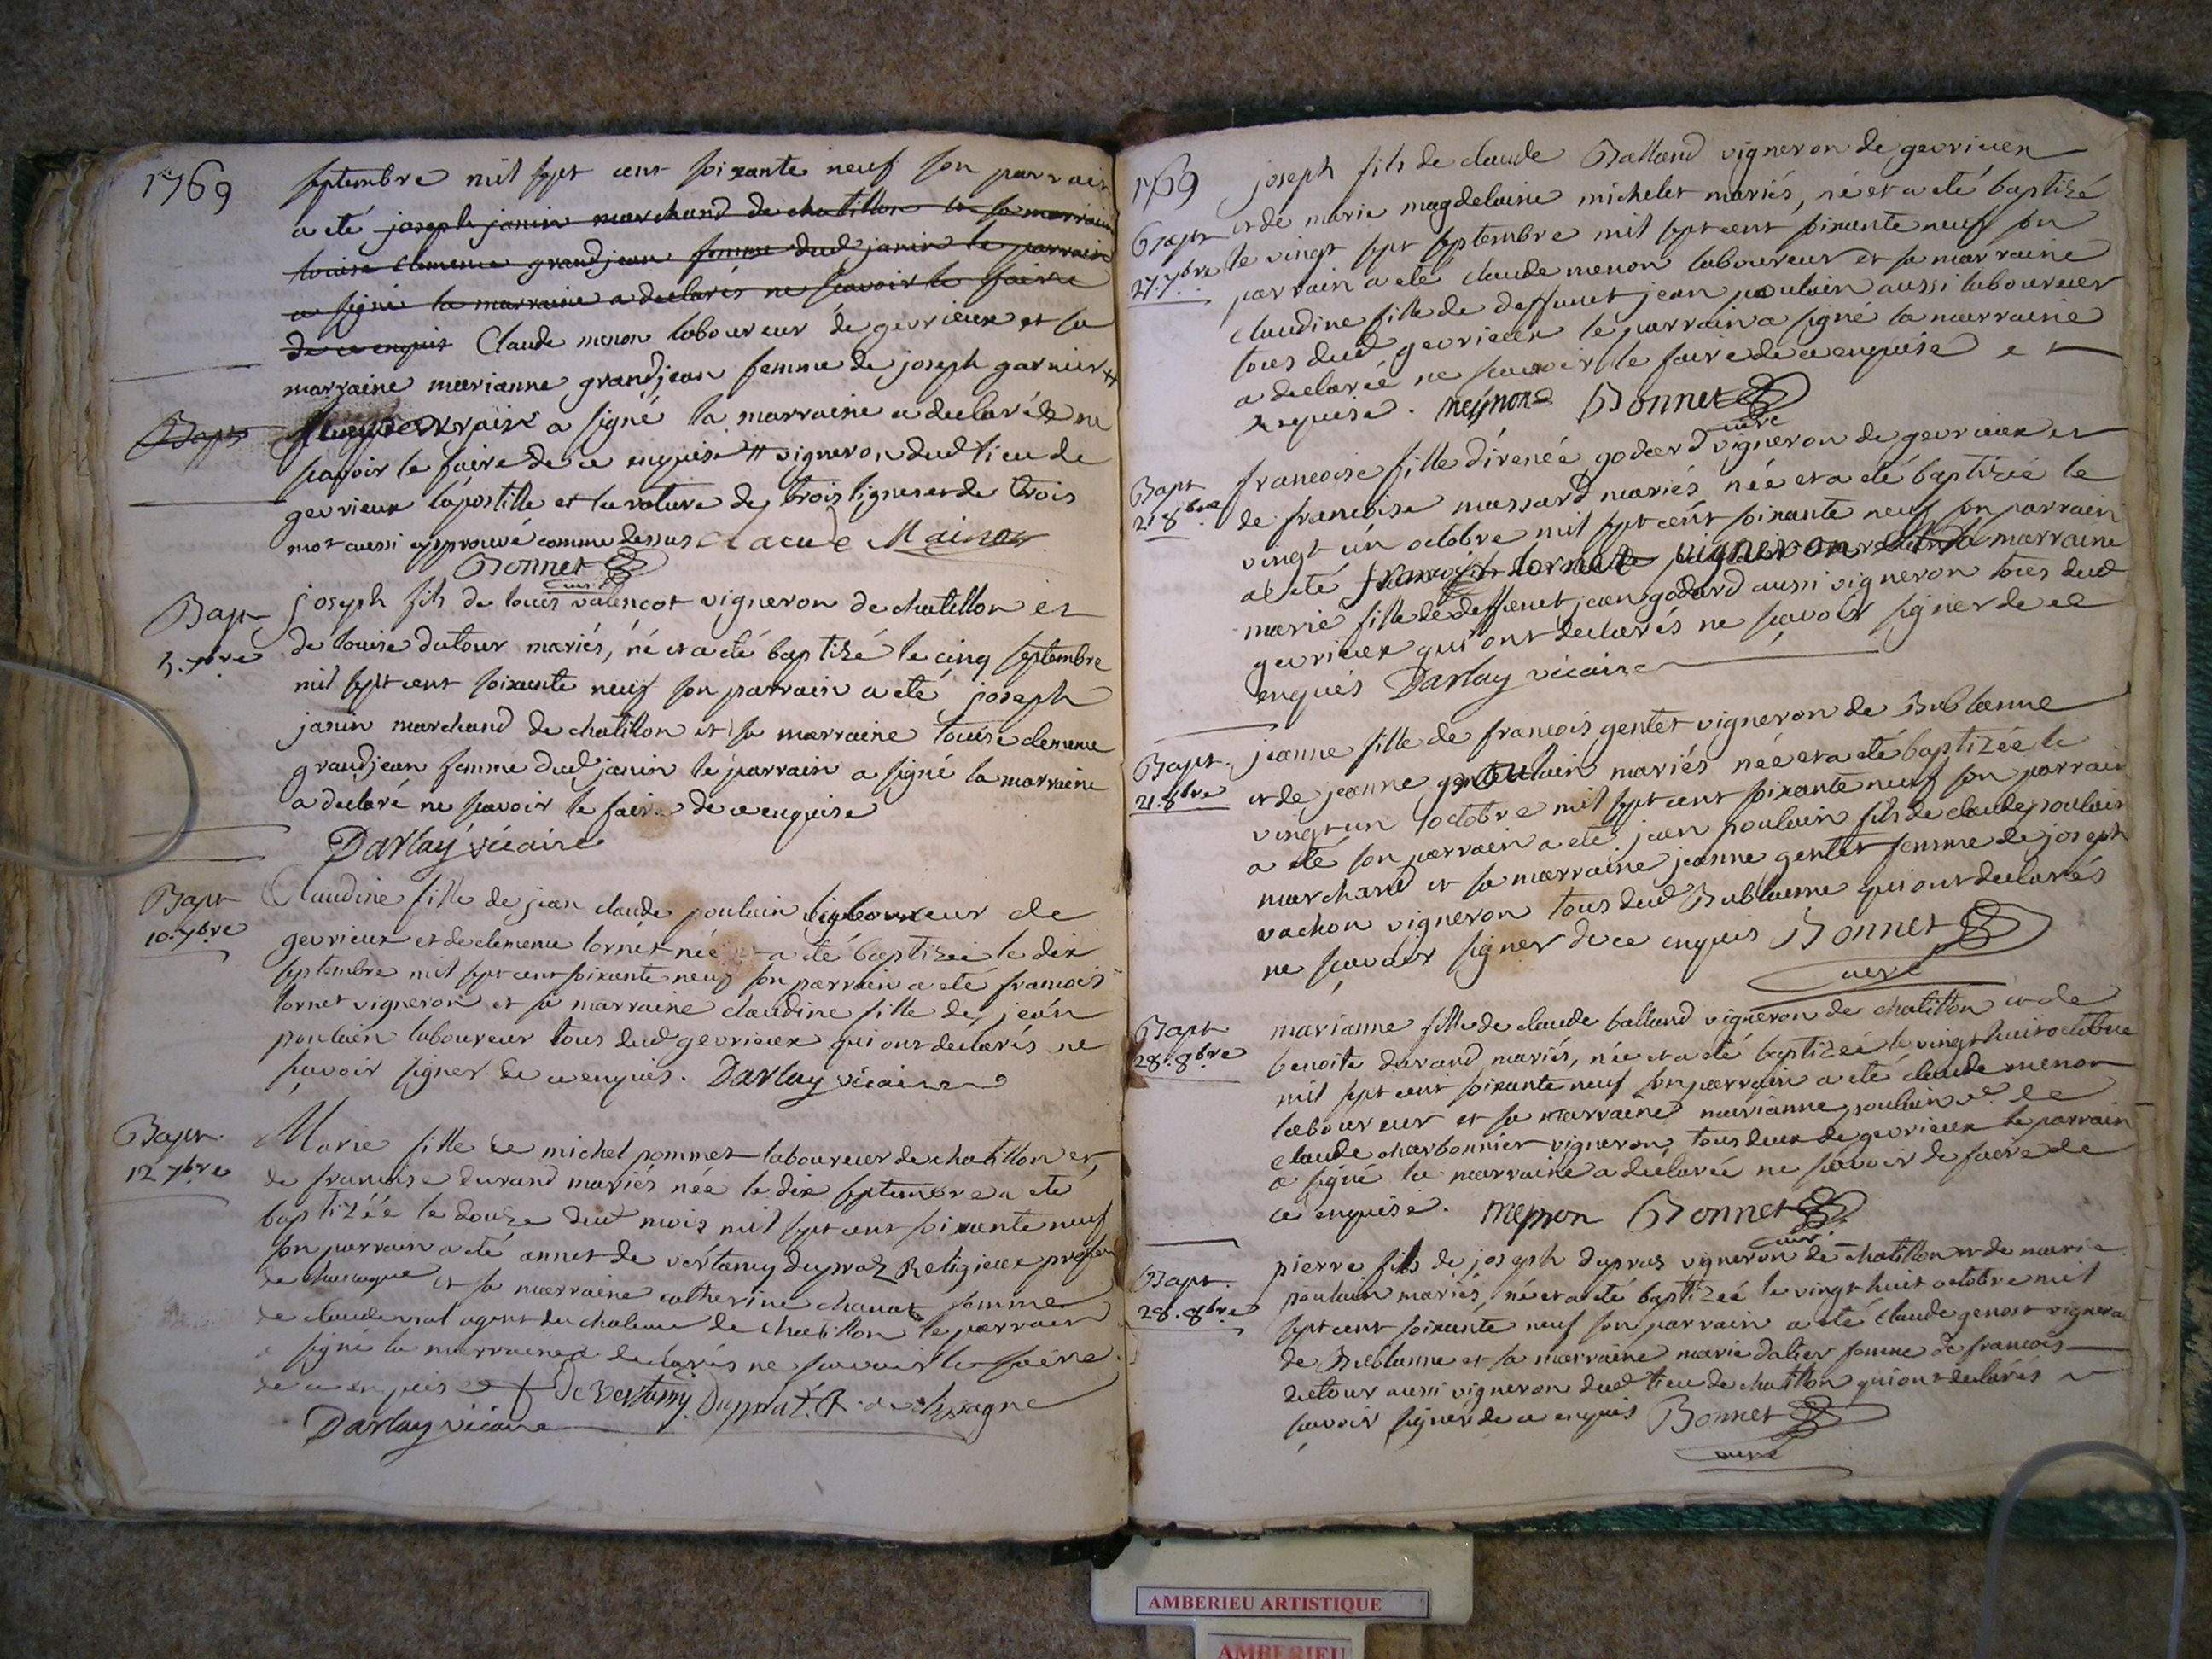 1769
septembre mil sept cent soixante neuf son parrain
a eté joseph janin marchand de chatillon et sa marraine
louise clemence grandjean femme dud janin le parrain
a signé la marraine a declarés ne scavoir le faire
de ce enquis Claude menon laboureur de gevrieux et sa
marraine marianne grandjean femme de joseph garnier #
a signé la marraine a declaré de ne
scavoir le faire de ce enquise # vigneron dud lieu de
gevrieux l'apostille et la rature de trois lignes et de trois
mot aussi approuvé comme dessus Claude
Bonnet curé
Bapt
Bapt
5. 7bre
joseph fils de louis valencot vigneron de chatillon et
de louise dutour mariés, né et a eté baptizé le cinq septembre
mil sept cent soixante neuf son parrain a eté joseph
janin marchand de chatillon et sa marraine louise clemence
grandjean femme dud janin le parrain a signé la marraine
a declaré ne scavoir le faire de ce enquise
Darlay vicaire
Bapt
10. 7bre
Claudine fille de jean claude poulain laboureur de
gevrieux et de clemence lornet née et a eté baptizée le dix
septembre mil sept cent soixante neuf son parrain a eté francois
lornet vigneron et sa marraine claudine fille de jean
poulain laboureur tous dud gevrieux qui ont declarés ne
scavoir signer de ce enquis. Darlay vicaire
Bapt.
12 7bre
Marie fille de michel pommet laboureur de chatillon et
de francoise durand mariés née le dix septembre a eté
baptizéé le douze dud mois mil sept cent soixante neuf
son parrain a eté annet de vertamy dupraz Religieux
de et sa marraine catherine chanat femme
de claude agent du chateau de chatillon le parrain
a signé la marraine a declarés ne scavoir le faire
de ce enquis De Vertamy
Darlay vicaire
1769
Bapt
27. 7bre
joseph fils de claude Balland vigneron de gevrieux
et de marie magdelaine michelet mariés, né et a eté baptizé
le vingt sept septembre mil sept cent soixante neuf son
parrain a eté claude menon laboureur et sa marraine
claudine fille de deffunct jean poulain aussi laboureur
tous dud gevrieux le parrain a signé la marraine
a declarée ne scavoir le faire de ce enquise et
requise. meynon Bonnet
curé
Bapt
21 8bre
francoise fille d'irenée godard vigneron de gevrieux et
de francoise massard mariés née et a eté baptizée le
vingt un octobre mil sept cent soixante neuf son parrain
a eté francois lornet vigneron et sa marraine
marie fille de deffunct jean godard aussi vigneron tous dud
gevrieux qui ont declarés ne scavoir signer de ce
enquis Darlay vicaire
Bapt.
21. 8bre
jeanne fille de francois gentet vigneron de Bublanne
et de jeanne poulain mariés née et a eté baptizée le
vingt un octobre mil sept cent soixante neuf son parrain
a eté son parrain a eté jean poulain fils de claude poulain
marchand et sa marraine jeanne gentet femme de joseph
vachon vigneron tous dud Bublanne qui ont declarés
ne scavoir signer de ce enquis Bonnet
curé
Bapt
28. 8bre
marianne fille de claude balland vigneron de chatillon et de
benoite durand mariés, née et a eté baptizée le vingt huit octobre
mil sept cent soixante neuf son parrain a eté claude menon
laboureur et sa marraine marianne poulain ve de
claude charbonnier vigneron, tous deux de gevrieux le parrain
a signé la marraine a declarée ne scavoir le faire de
ce enquise. meynon Bonnet
curé
Bapt.
28. 8bre
pierre fils de joseph dupras vigneron de chatillon et de marie
poulain mariés, né et a eté baptizeé le vingt huit octobre mil
sept cent soixante neuf son parrain a eté claude genost vigneron
de Bublanne et sa marraine marie dalier femme de francois
dutour aussi vigneron dud lieu de chatillon qui ont declarés ne
scavoir signer de ce enquis Bonnet
curé
AMBERIEU ARTISTIQUE
AMBERIEU